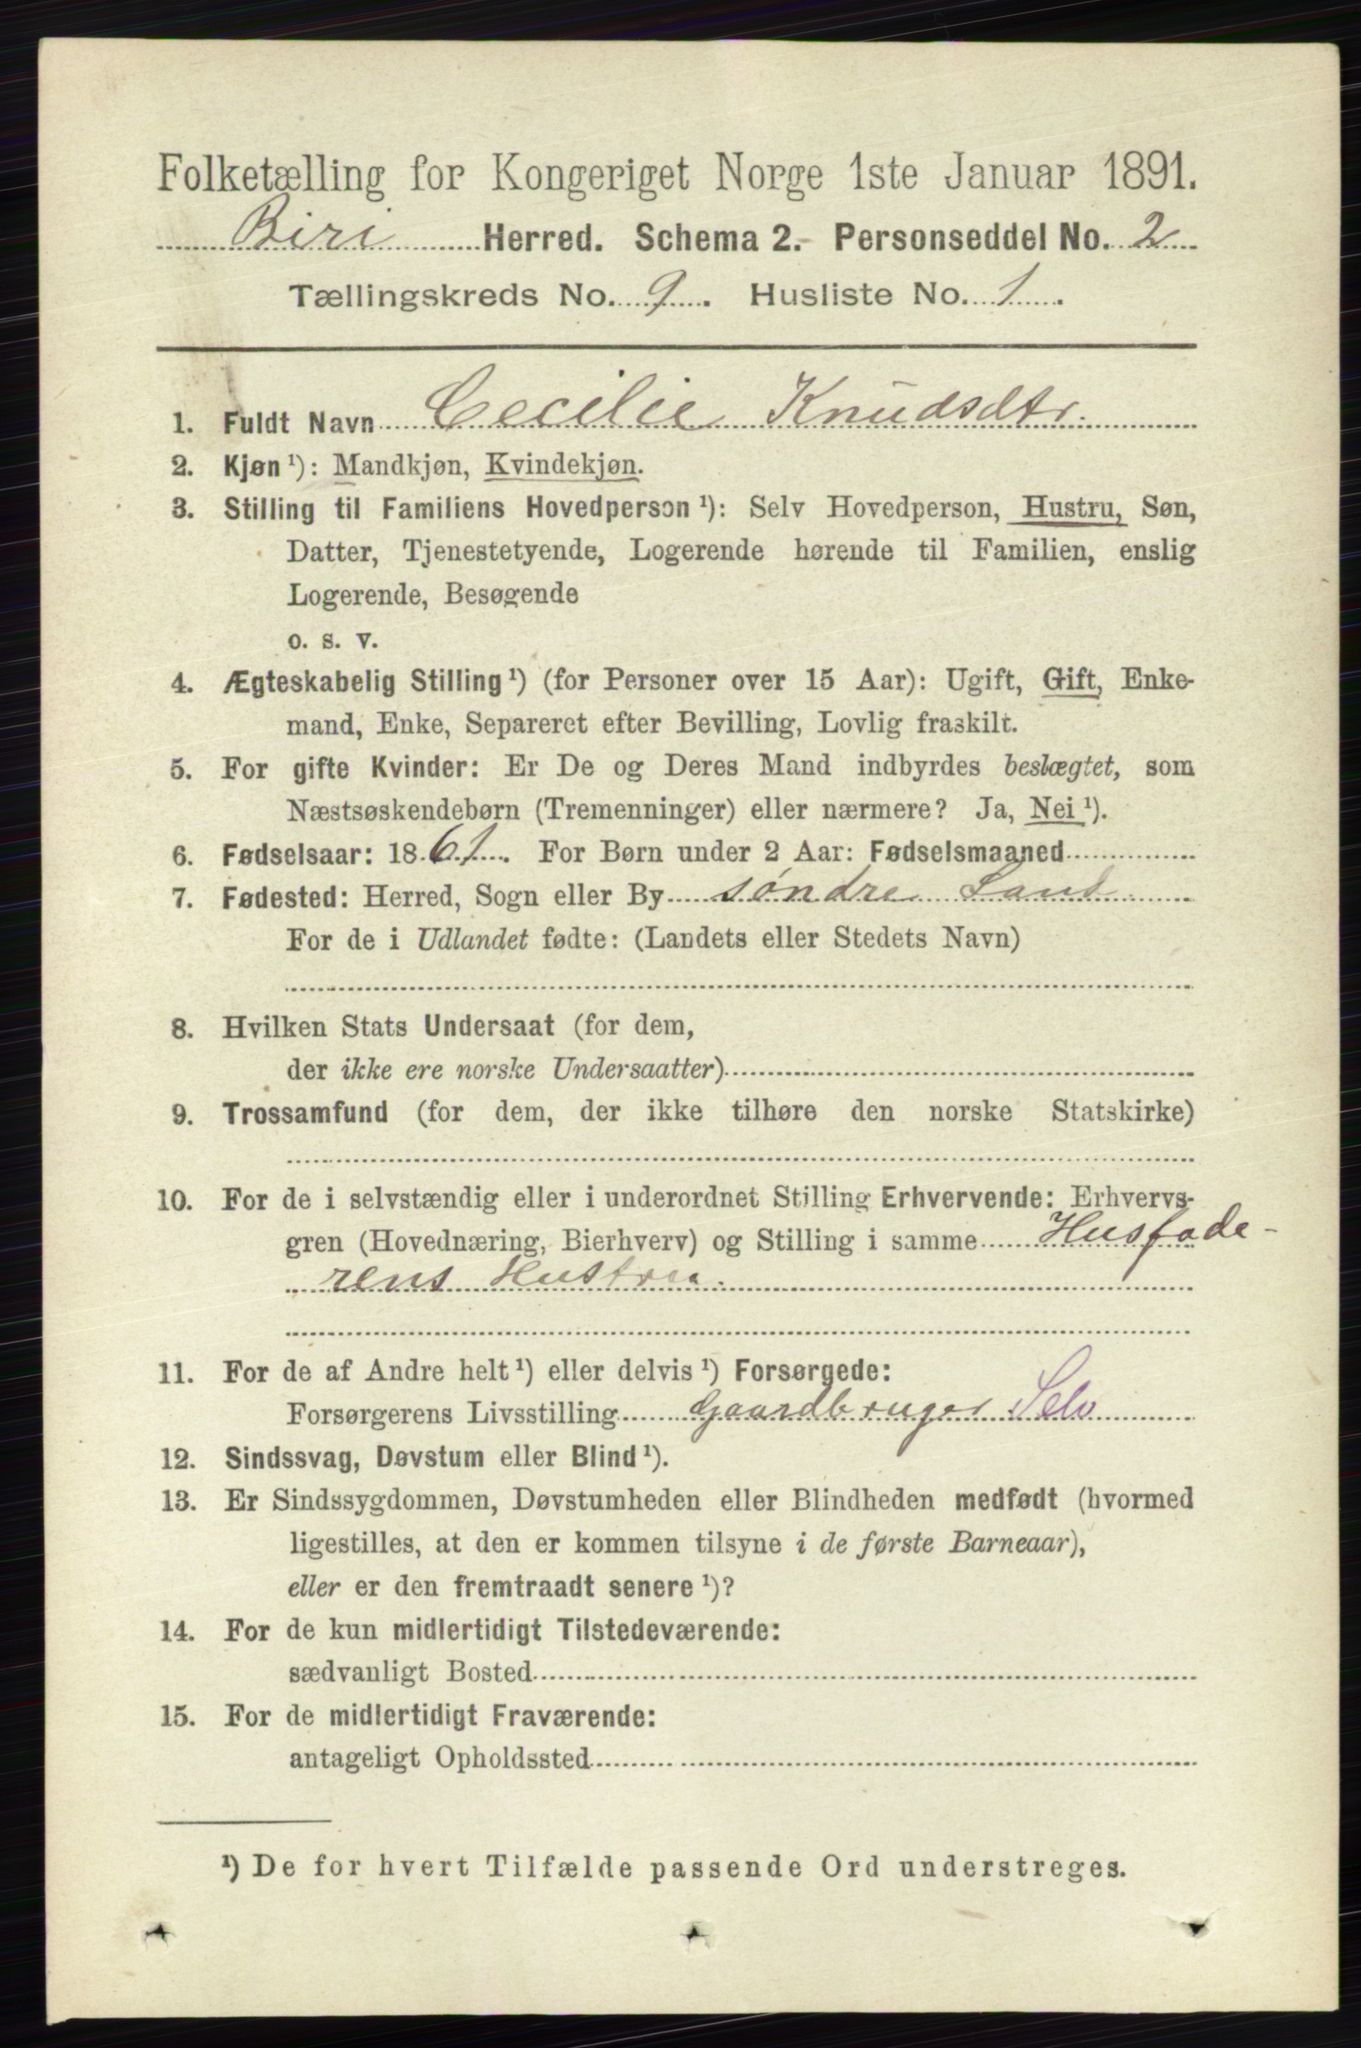 Folketælling for Kongeriget Norge 1ste Januar 1891.
Biri Herred. Schema 2. Personseddel No. 2
Tællingskreds No. 9. Husliste No. 1.
1. Fuldt Navn Cecilie Knudsdtr.
2. Kjøn ¹): Mandkjøn, Kvindekjøn.
3. Stilling til Familiens Hovedperson ¹): Selv Hovedperson, Hustru, Søn,
Datter, Tjenestetyende, Logerende hørende til Familien, enslig
Logerende, Besøgende
o. s. v.
4. Ægteskabelig Stilling ¹) (for Personer over 15 Aar): Ugift, Gift, Enke-
mand, Enke, Separeret efter Bevilling, Lovlig fraskilt.
5. For gifte Kvinder: Er De og Deres Mand indbyrdes beslægtet, som
Næstsøskendebørn (Tremenninger) eller nærmere? Ja, Nei ¹).
6. Fødselsaar: 1861. For Børn under 2 Aar: Fødselsmaaned
7. Fødested: Herred, Sogn eller By søndre Land
For de i Udlandet fødte: (Landets eller Stedets Navn)
8. Hvilken Stats Undersaat (for dem,
der ikke ere norske Undersaatter)
9. Trossamfund (for dem, der ikke tilhøre den norske Statskirke)
10. For de i selvstændig eller i underordnet Stilling Erhvervende: Erhvervs-
gren (Hovednæring, Bierhverv) og Stilling i samme Husfade-
rens Hustru.
11. For de af Andre helt ¹) eller delvis ¹) Forsørgede:
Forsørgerens Livsstilling Gaardbruger Selv
12. Sindssvag, Døvstum eller Blind ¹).
13. Er Sindssygdommen, Døvstumheden eller Blindheden medfødt (hvormed
ligestilles, at den er kommen tilsyne i de første Barneaar),
eller er den fremtraadt senere ¹)?
14. For de kun midlertidigt Tilstedeværende:
sædvanligt Bosted
15. For de midlertidigt Fraværende:
antageligt Opholdssted
¹) De for hvert Tilfælde passende Ord understreges.